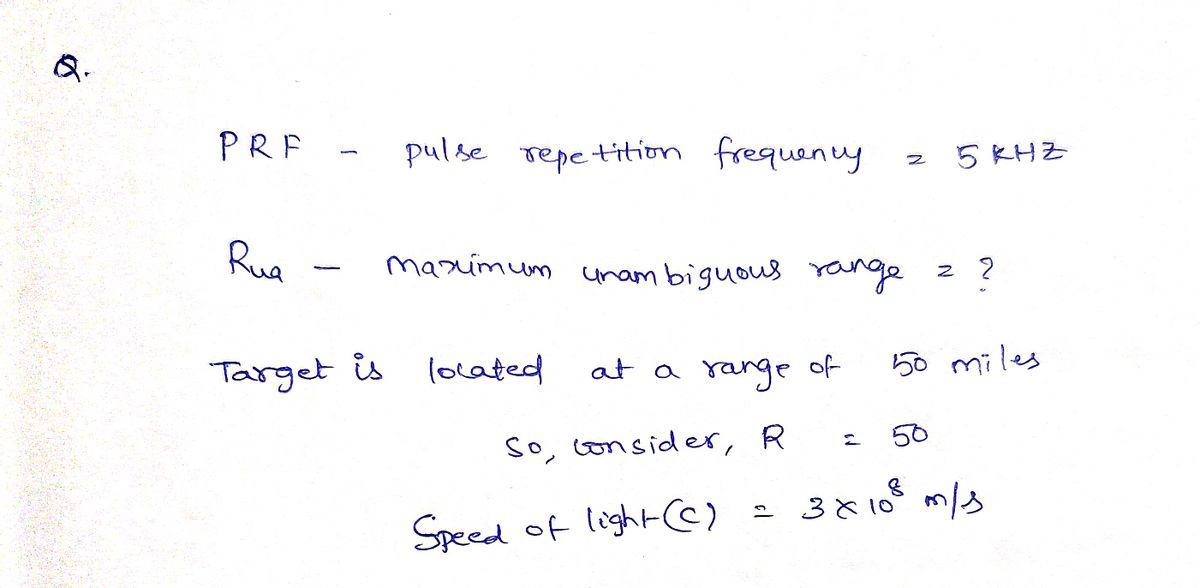 Q.
PRF - pulse repetition frequency = 5 KHZ
Rua - maximum unambiguous range = ?
Target is located at a range of 50 miles
so, consider, R = 50
Speed of light (c) = 3 × 10⁸ m/s